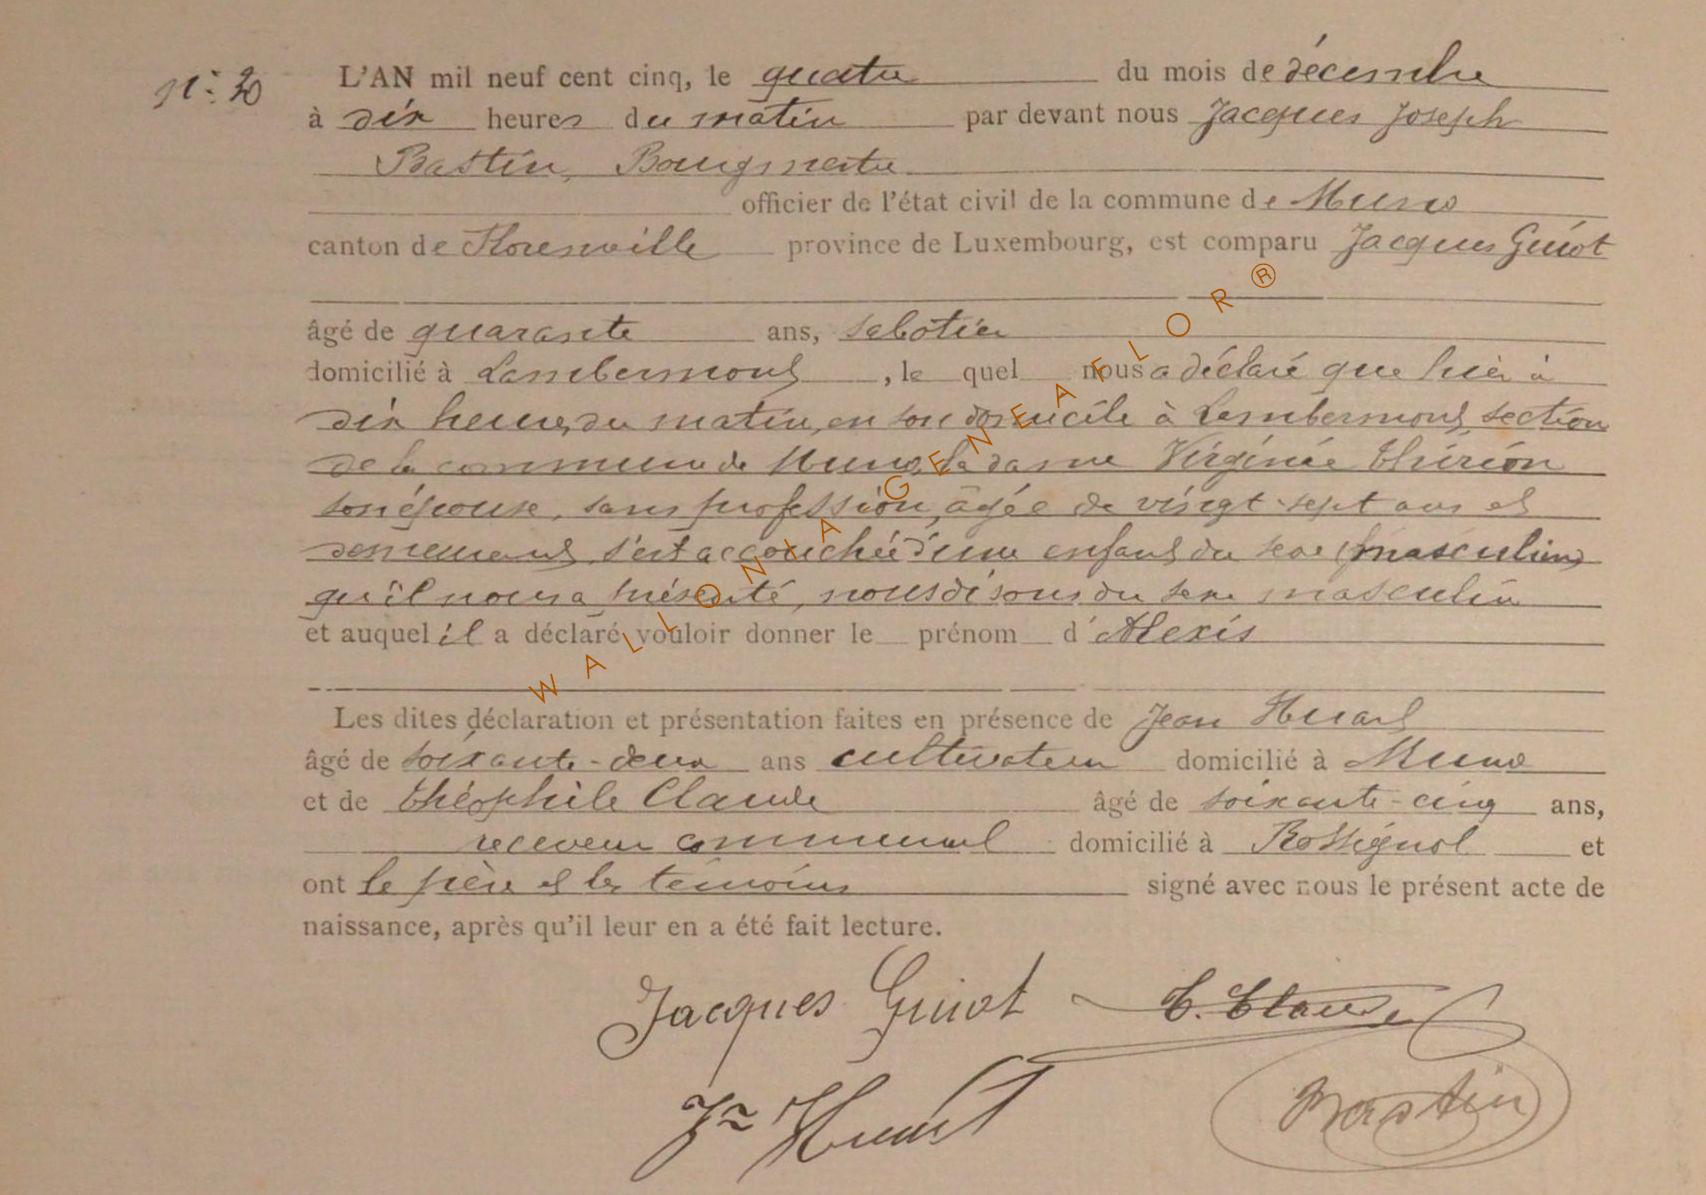 N° 20
L'AN mil neuf cent cinq, le quatre du mois de décembre
à dix heures du matin par devant nous Jacques Joseph
Bastin, Bourgmestre
officier de l'état civil de la commune de Muno
canton de Florenville province de Luxembourg, est comparu Jacques Guiot
âgé de quarante ans, sabotier
domicilié à Lambermont, lequel nous a déclaré que hier à
dix heures du matin, en son domicile à Lambermont, section
de la commune de Muno, la dame Virginie Thirion
son épouse, sans profession, âgée de vingt-sept ans et
demeurant s'est accouchée d'une enfant du sexe (masculin)
qu'il nous a présenté, nous disons du sexe masculin
et auquel il a déclaré vouloir donner le prénom d'Alexis
Les dites déclaration et présentation faites en présence de Jean Huart
âgé de soixante-deux ans cultivateur domicilié à Muno
et de Théophile Claude âgé de soixante-cinq ans,
receveur communal domicilié à Rossignol et
ont le père et les témoins signé avec nous le présent acte de
naissance, après qu'il leur en a été fait lecture.
Jacques Guiot T. Claude
Jn Huart Bastin
WALLONIA GENEAFLOR®